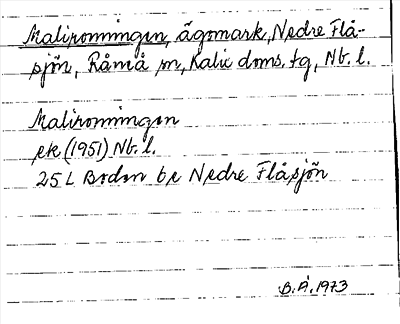 Malironningen, ägomark, Nedre Flå-
sjön, Råneå sn, Kalix doms. tg, Nb. l.
Malironningen
ek (1951) Nb. l.
25 L Boden be Nedre Flåsjön
B.Å. 1973